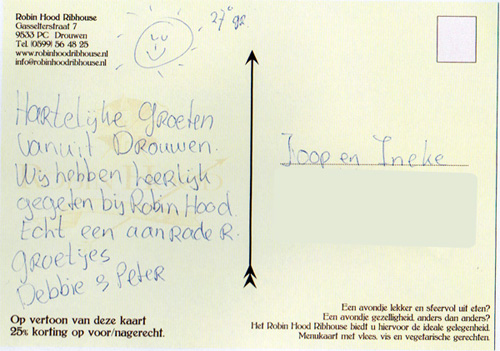 Robin Hood Ribhouse
Gasselterstraat 7
9533 PC Drouwen
Tel. (0599) 56 48 25
www.robinhoodribhouse.nl
info@robinhoodribhouse.nl
27°
Hartelijke Groeten
vanuit Drouwen.
Wij hebben heerlijk
gegeten bij Robin Hood.
Echt een aanrader.
Groetjes
Debbie & Peter
Joop en Ineke
Op vertoon van deze kaart
25% korting op voor/nagerecht.
Een avondje lekker en sfeervol uit eten?
Een avondje gezelligheid, anders dan anders?
Het Robin Hood Ribhouse biedt u hiervoor de ideale gelegenheid.
Menukaart met vlees, vis en vegetarische gerechten.